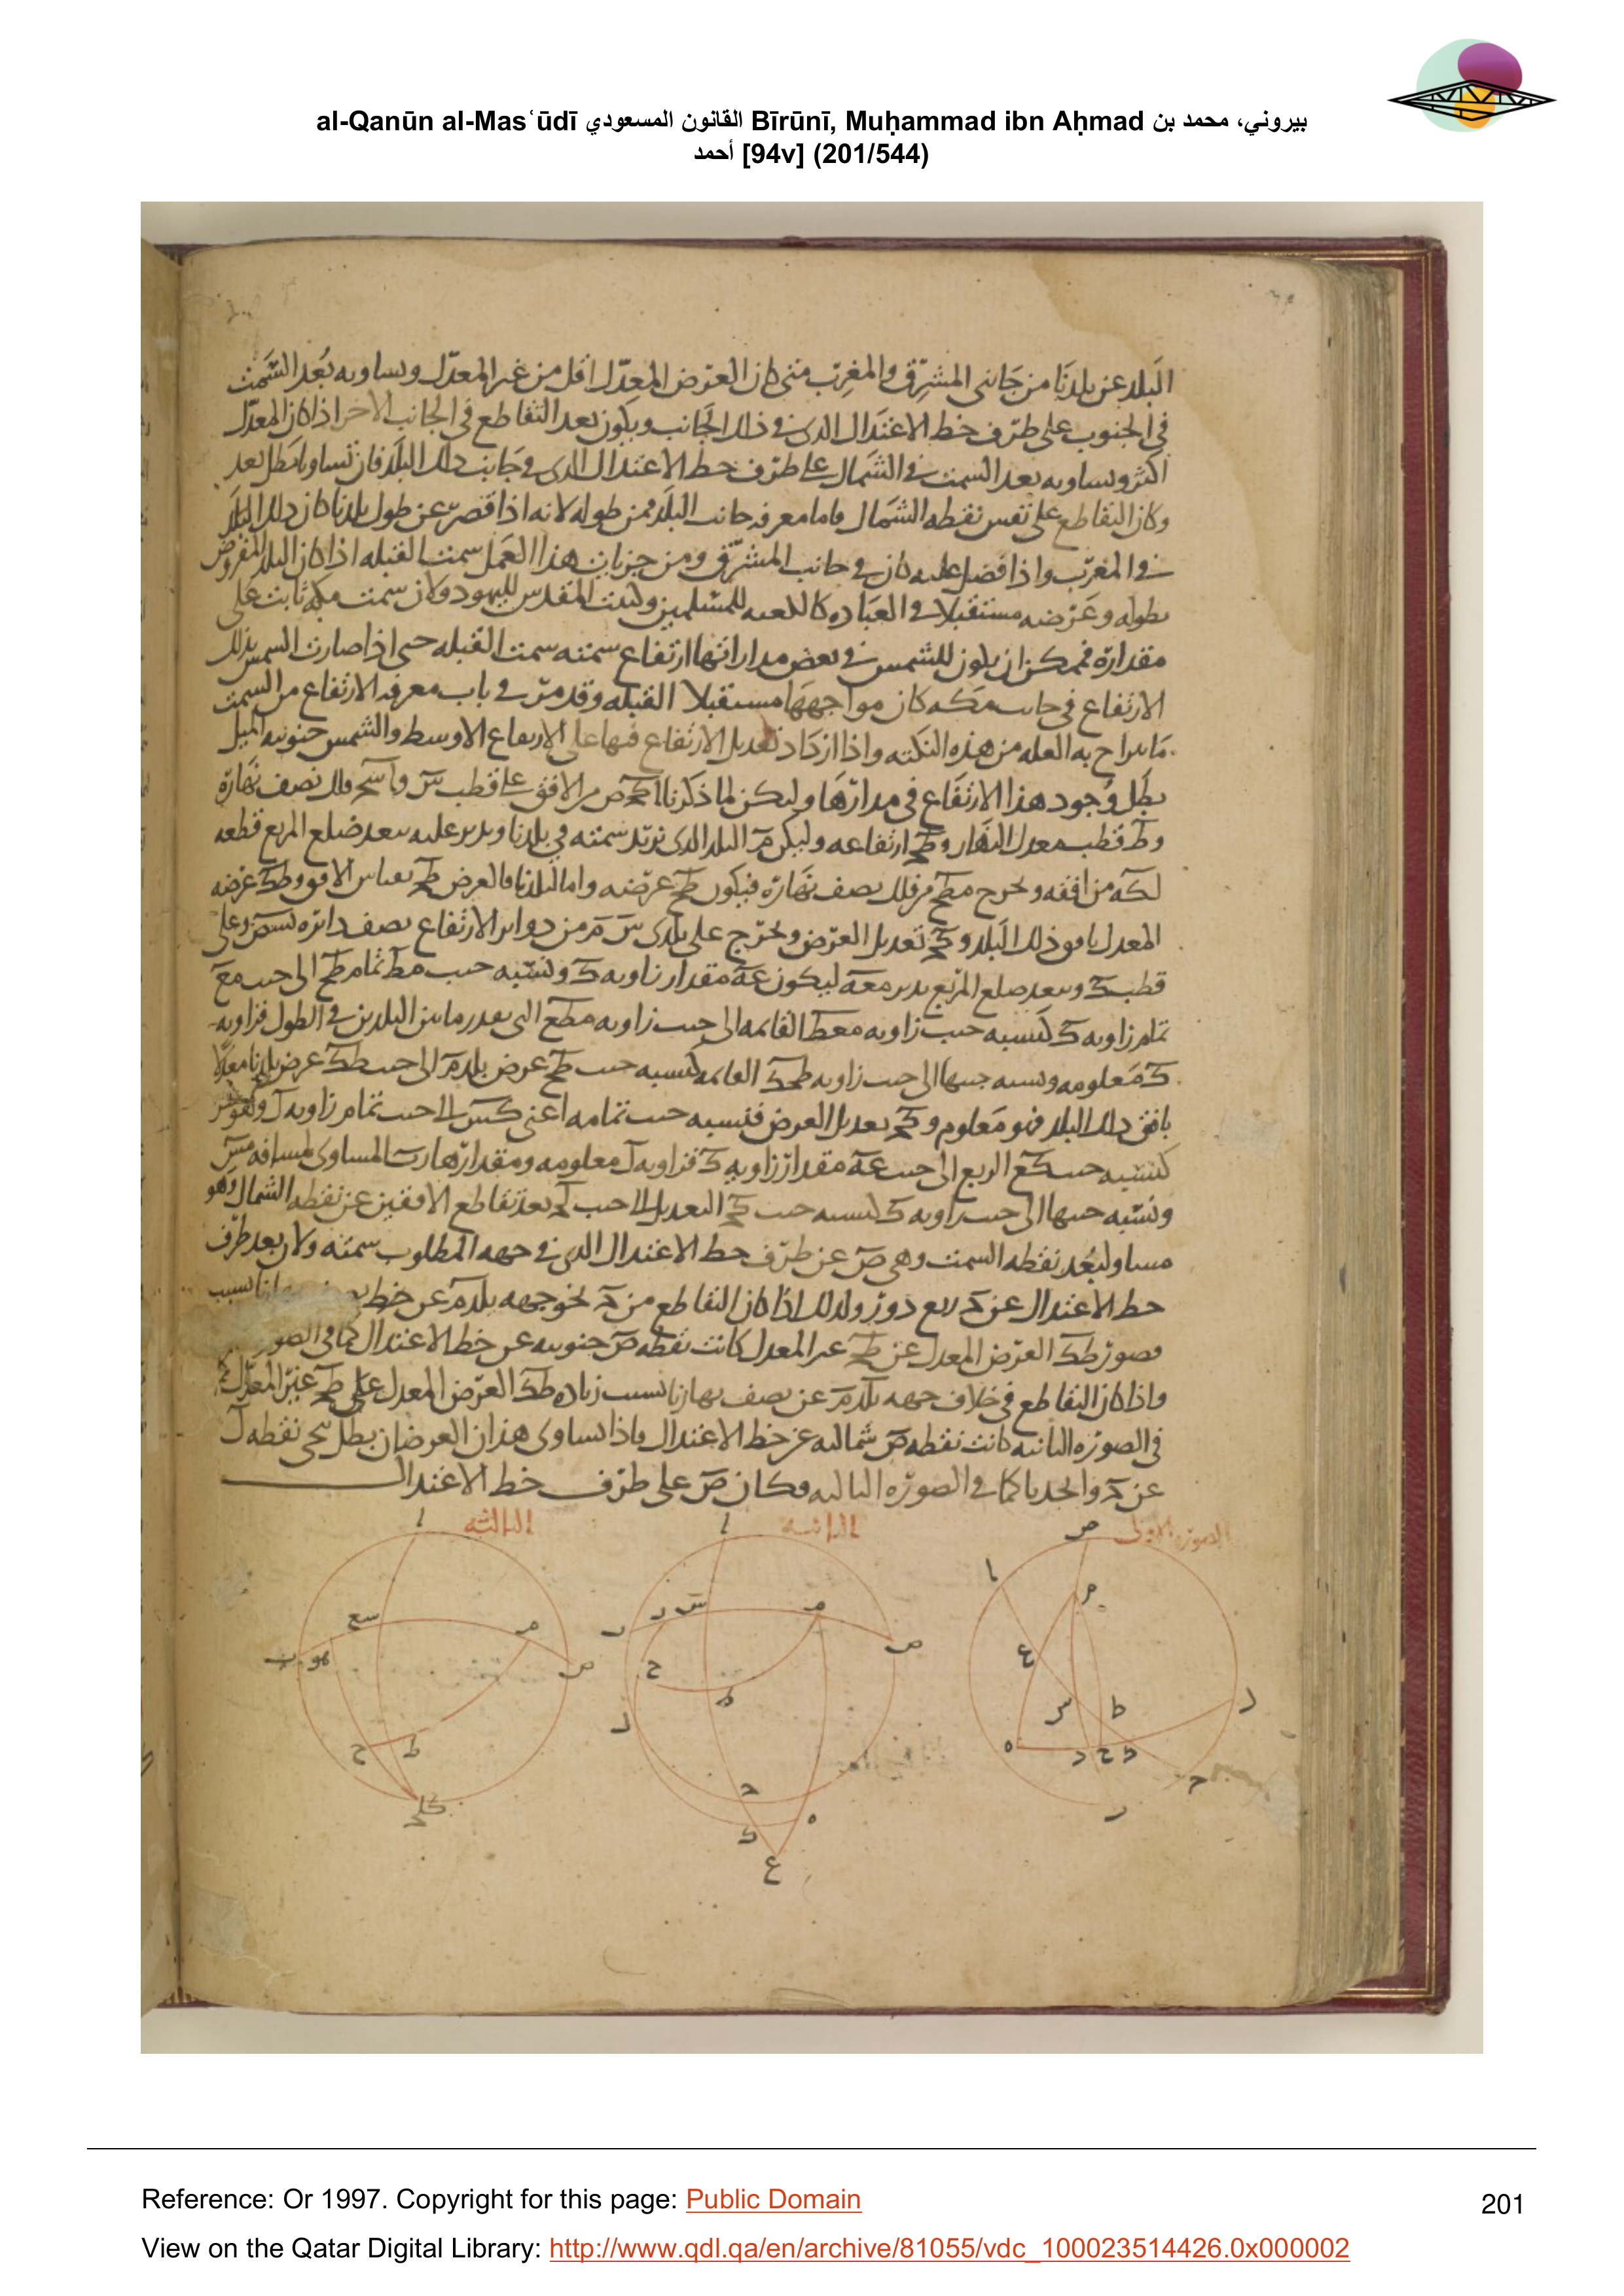 al-Qanūn al-Masʿūdī القانون المسعودي Bīrūnī, Muḥammad ibn Aḥmad بيروني، محمد بن
أحمد [94v] (201/544)
البلد عن بلدنا من جانبى المشرق والمغرب متى كان العرض المعدل اقل من غير المعدل ويساويه بعد السمت
فى الجنوب على طرف خط الاعتدال الذى فى ذلك الجانب ويكون بعد التقاطع فى الجانب الاخر اذا كان المعدل
اكثر ويساويه بعد السمت فى الشمال على طرف خط الاعتدال الذى فى جانب ذلك البلد فان تساويا بطل بعد
وكان التقاطع على نفس نقطه الشمال فاما معرفه جانب البلد فمن طوله لانه اذا قصر عن طول بلدنا كان ذلك البلد
فى المغرب واذا فضل عليه كان فى جانب المشرق ومن جزيات هذا العمل سمت القبله اذا كان البلد المفروض
بطوله وعرضه مستقبلا فى العباده كالكعبه للمسلمين وكبيت المقدس لليهود ولان سمت مكه ثابت على
مقداره فممكن ان يكون للشمس فى بعض مداراتها ارتفاع سمته سمت القبله حتى اذا صارت الشمس بذلك
الارتفاع فى جانب مكه كان مواجهها مستقبلا القبله وقد مر فى باب معرفه الارتفاع من السمت
ما يزاح به العله من هذه النكته واذا ازداد تعديل الارتفاع فيها على الارتفاع الاوسط والشمس جنوبيه الميل
بطل وجود هذا الارتفاع فى مدارها وليكن لما ذكرنا من الافق على قطب س فلك نصف نهاره
وط قطب معدل النهار وطح ارتفاعه وليكن م البلد الذى نريد سمته فى بلدنا وندير عليه ببعد ضلع المربع قطعه
لكه من افقه ونخرج مطح من فلك نصف نهاره فيكون طح عرضه واما لبلدنا فالعرض طح بقياس الافق وطك عرضه
المعدل بافق ذلك البلد وكح تعديل العرض ونخرج على بلدى س م من دواير الارتفاع نصف دائره وعلى
قطب ك وببعد ضلع المربع ندير معه ليكون عه مقدار زاويه ك ونسبه جيب مط تمام طح الى جيب مع
تمام زاويه ك كنسبه جيب زاويه معط القائمه الى جيب زاويه مطع التى بقدر ما بين البلدين فى الطول فزاويه
ك معلومه ونسبه جيبها الى جيب زاويه طحك القائمه كنسبه جيب طح عرض بلد م الى جيب طك عرض بلدنا معدلا
بافق ذلك البلد فهو معلوم وكح تعديل العرض فنسبه جيب تمامه اعنى كس الى جيب تمام زاويه ل
كنسبه جيب كع الربع الى جيب عه مقدار زاويه ك فزاويه ل معلومه ومقدارها المساوى لمسافه مس
ونسبه جيبها الى جيب زاويه ك كنسبه جيب كح التعديل الى جيب لح بعد تقاطع الافقين عن نقطه الشمال وهو
مساو لبعد نقطه السمت وهى ص عن طرف خط الاعتدال الذى فى جهه المطلوب سمته ولان بعد طرف
خط الاعتدال عن ح ربع دور ولذلك اذا كان التقاطع من ح نحو جهه بلد م عن خط بسبب
قصور طك العرض المعدل عن طح غير المعدل كانت نقطه ص جنوبيه عن خط الاعتدال كما فى
واذا كان التقاطع فى خلاف جهه بلد م عن نصف نهارنا بسبب زياده طك العرض المعدل على طح غير المعدل
فى الصوره الثانيه كانت نقطه ص شماليه عن خط الاعتدال فاذا تساوى هذان العرضان بطل تنحى نقطه ل
عن ح واتحدتا كما فى الصوره الثالثه وكان ص على طرف خط الاعتدال
الصوره الاولى
الثانيه
الثالثه
Reference: Or 1997. Copyright for this page: Public Domain
201
View on the Qatar Digital Library: http://www.qdl.qa/en/archive/81055/vdc_100023514426.0x000002